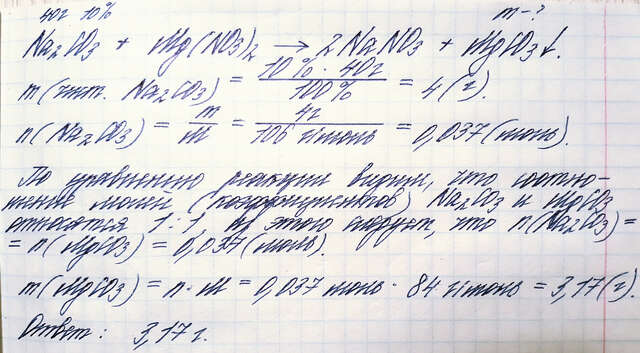 40г 10% m-?
Na2CO3 + Mg(NO3)2 → 2NaNO3 + MgCO3↓.
m(чист. Na2CO3) = 10% · 40г / 100% = 4(г).
n(Na2CO3) = m / M = 4г / 106 г/моль = 0,037(моль).
По уравнению реакции видим, что соотно-
шение молей (коэффициентов) Na2CO3 и MgCO3
относятся 1:1 из этого следует, что n(Na2CO3) =
= n(MgCO3) = 0,037(моль).
m(MgCO3) = n · M = 0,037 моль · 84 г/моль = 3,17(г).
Ответ: 3,17 г.